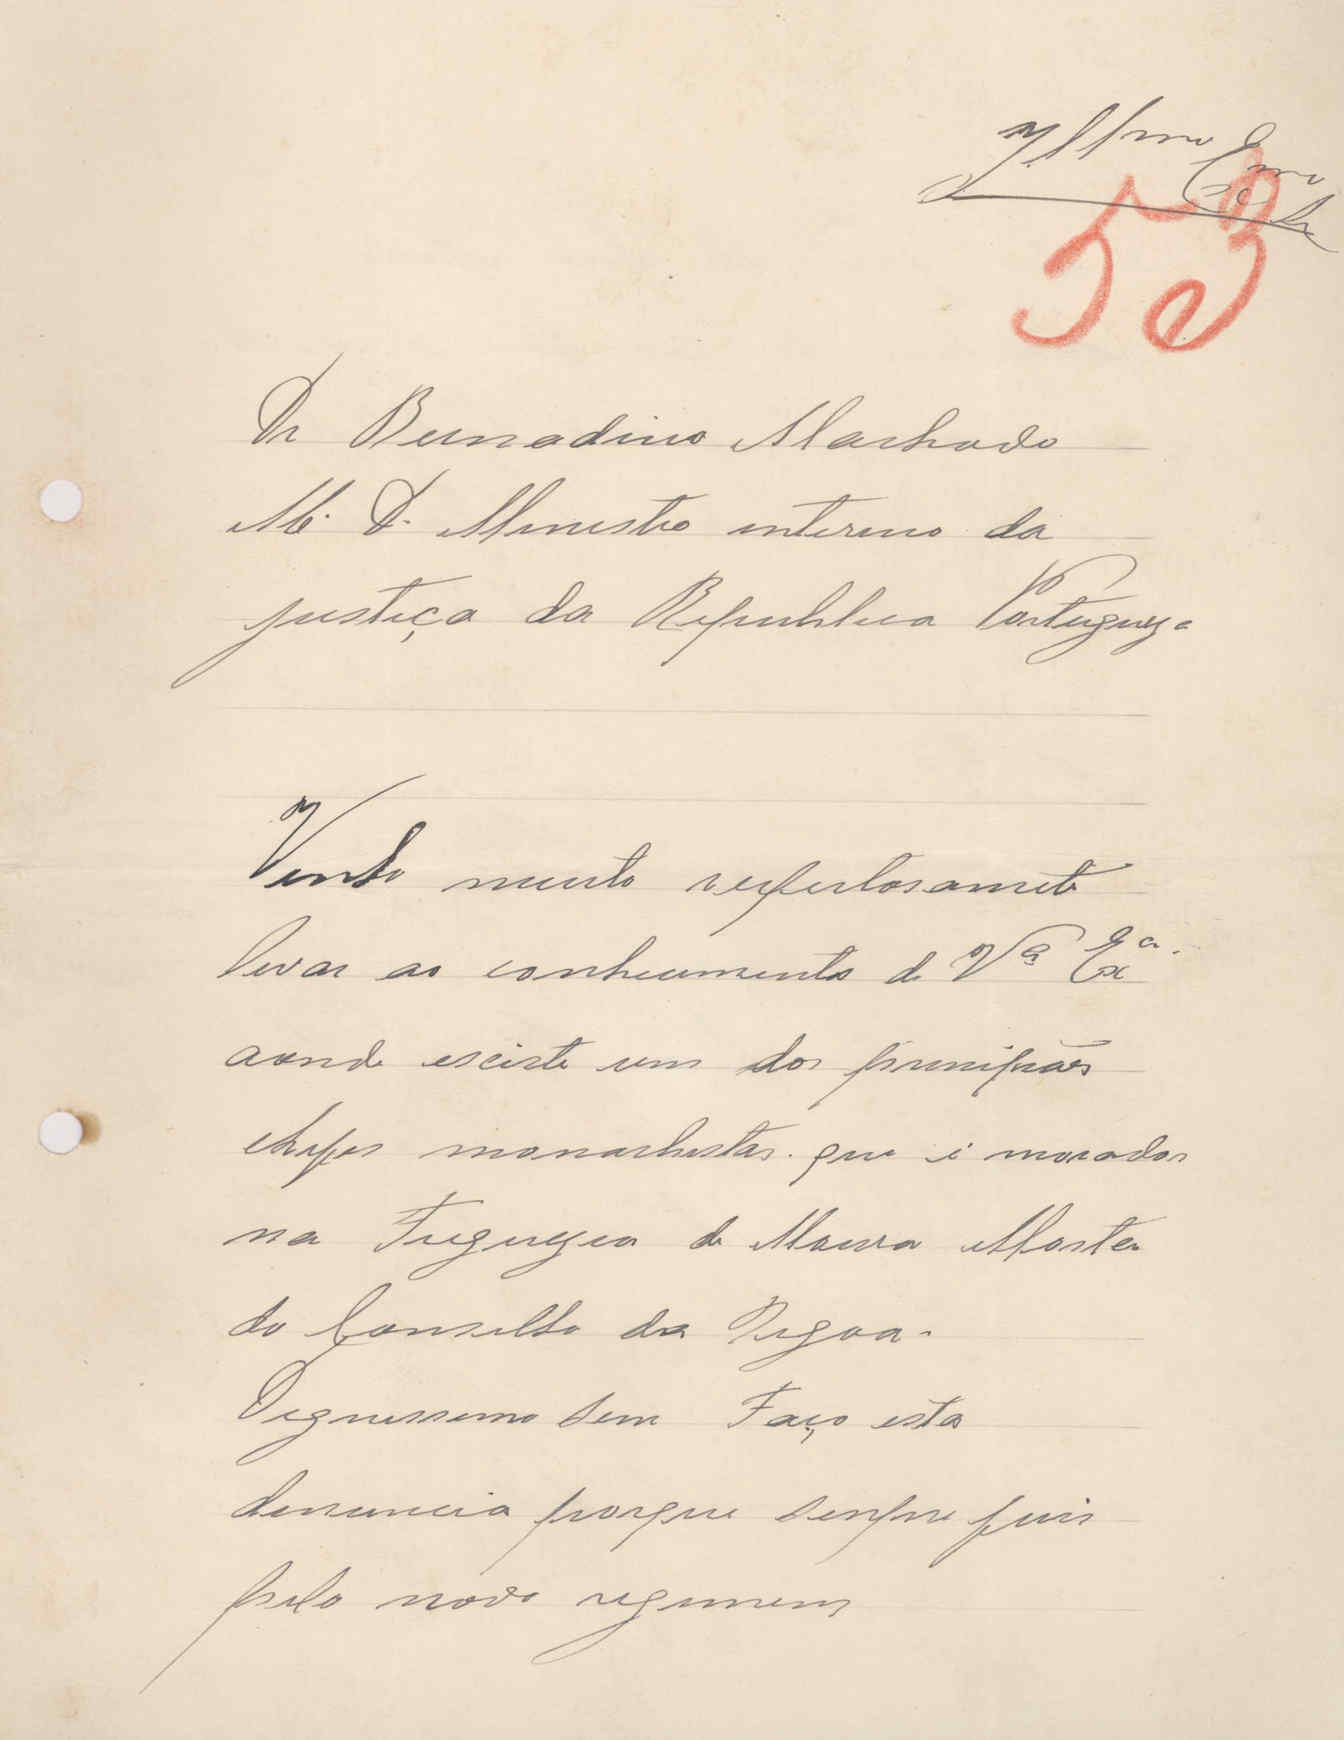 Illmo Exmo Sr
53
Dr Bernadino Machado
M. D. Menistro interino da
justiça da Republica Portugueza
Venho muito respeitosamente
levar ao conhecimento de Va Exa.
aonde exciste um dos principães
chefes monarchistas. que é morador
na Freguezia de Moura Morta
do Conselho da Regoa.
Degnissemo Senr Faço esta
denuncia porque senpre fuis
pelo novo regimem